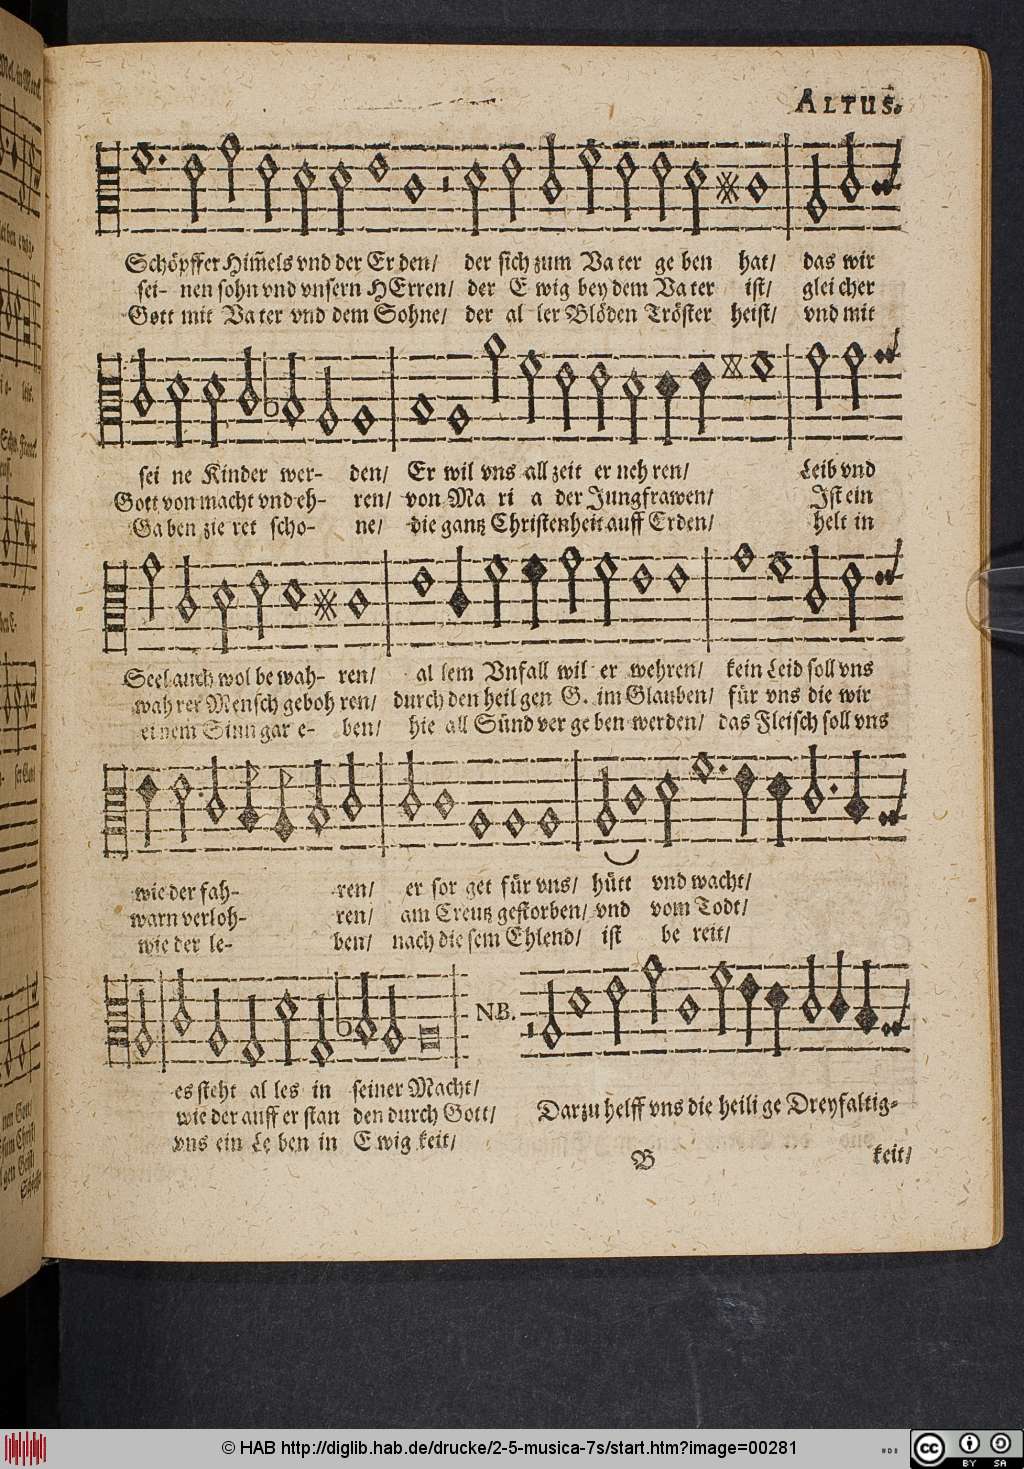 ALTUS.
Schöpffer Him̃els vnd der Er den/ der sich zum Va ter ge ben hat/ das wir
sei- nen sohn vnd vnsern HErren/ der E wig bey dem Va ter ist/ glei cher
Gott mit Va ter vnd dem Sohne/ der al ler Blöden Tröster heist/ vnd mit
sei ne Kinder wer- den/ Er wil vns all zeit er neh ren/ Leib vnd
Gott von macht vnd eh- ren/ von Ma ri a der Jungfrawen/ Ist ein
Ga ben zie ret scho- ne/ die gantz Christenheit auff Erden/ helt in
Seel auch wol be wah- ren/ al lem Vnfall wil er wehren/ kein Leid soll vns
wah rer Mensch geboh ren/ durch den heil gen G. im Glauben/ für vns die wir
einem Sinn gar e- ben/ hie all Sünd ver ge ben werden/ das Fleisch soll vns
wie der fah- ren/ er sor get für vns/ hütt vnd wacht/
warn verloh- ren/ am Creutz gestorben/ vnd vom Todt/
wie der le- ben/ nach die sem Ehlend/ ist be reit/
NB.
es steht al les in seiner Macht/
wie der auff er stan den durch Gott/ Darzu helff vns die heili ge Dreyfaltig-
vns ein Le ben in E wig keit/
B keit/
© HAB http://diglib.hab.de/drucke/2-5-musica-7s/start.htm?image=00281
cc BY SA